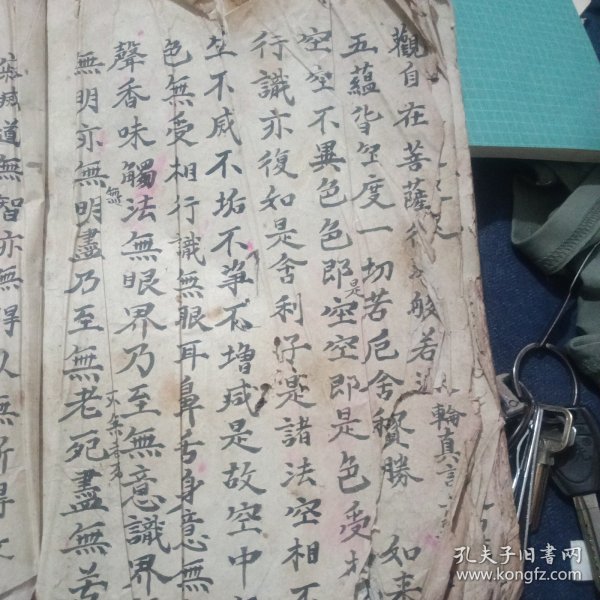 輪真言
觀自在菩薩行 般若
五蘊皆空度一切苦厄舍 勝 如来
空空不異色色即是空空即是色受
行識亦復如是舍利子是諸法空相不
生不咸不垢不爭不增咸是故空中
色無受相行識無眼耳鼻舌身意無
聲香味觸法無眼界乃至無意識界
無
無明亦無明盡乃至無老死盡無苦
道無智亦無得以無所得
孔夫子旧书网
www.kongfz.com